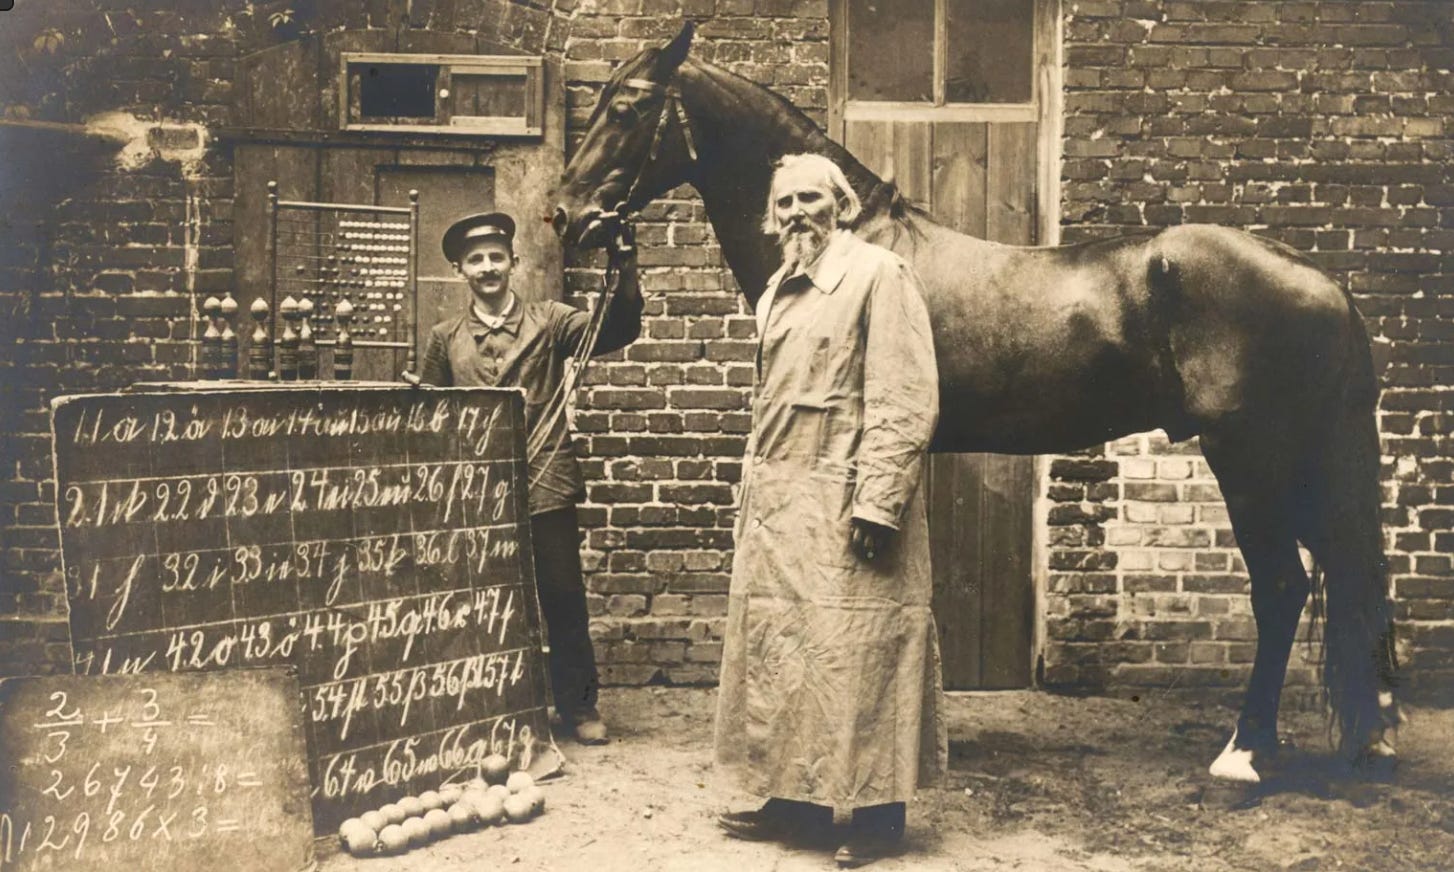 11 a 12 ä 13 14 au 15 äu 16 b 17
21 22 d 23 e 24 ei 25 eu 26 f 27 g
31 h 32 i 33 ie 34 j 35 k 36 l 37 m
41 n 42 o 43 ö 44 p 45 q 46 r 47 s
54 st 55 ß 56 57 t
64 v 65 w 66 67 z
2/3 + 3/4 =
26743 : 8 =
12986 x 3 =